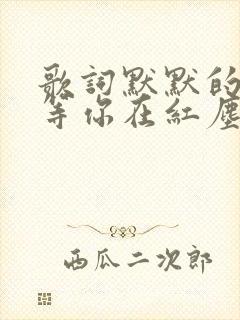 歌詞默默的
等你在紅塵
西瓜二次郎